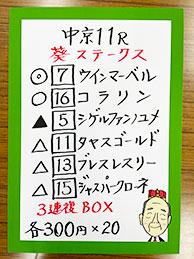 中京11R
葵ステークス
◎ 7 ウインマーベル
○ 16 コラリン
▲ 5 シゲルファンノユメ
△ 11 タヤスゴールド
△ 13 ブレスレスリー
△ 15 ジャスパークローネ
3連複BOX
各300円×20